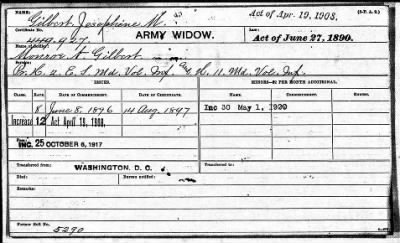 NAME.
Gilbert Josephine M.
Act of Apr. 19, 1908.
Certificate No.
449,927.
ARMY WIDOW.
LAW.
Act of June 27, 1890.
Name of Soldier:
Monroe A. Gilbert
E. 1. Md. Vol. Inf. K. 11. Md. Vol. Inf.
ISSUES.
MINORS—$2 PER MONTH ADDITIONAL.
CLASS. RATE. DATE OF COMMENCEMENT. DATE OF CERTIFICATE.
8 June 8. 1896 14 Aug. 1897
Inc 30 May 1, 1920
Increase 12 Act April 19, 1908,
INC. 25 OCTOBER 6, 1917
Transferred from
WASHINGTON, D. C.
Transferred to
Died:
Bureau notified
Remarks:
Former Roll No.
5290